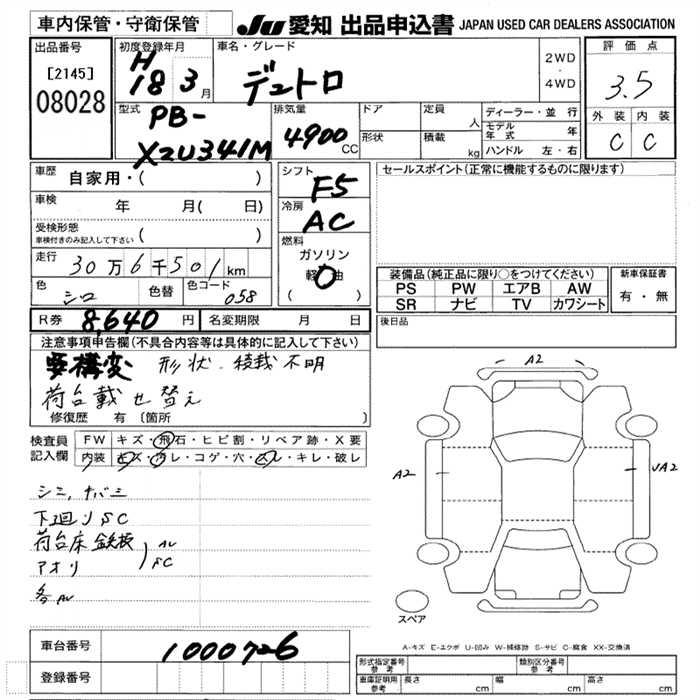 車内保管・守衛保管
JU 愛知 出品申込書 JAPAN USED CAR DEALERS ASSOCIATION
出品番号
[2145]
08028
初度登録年月
H
18 3 月
車名・グレード
デュトロ
2WD
・
4WD
評価点
3.5
外装 内装
C C
型式
PB-
XZU341M
排気量
4900 CC
ドア
定員 人
形状
積載 kg
ディーラー・並行
モデル年式 年
ハンドル 左・右
車歴 自家用・( )
車検 年 月( 日)
受検形態
車検付きのみ記入して下さい ( )
走行 30万6千501km
色 シロ 色替 色コード 058
シフト
F5
冷房
AC
燃料
ガソリン
軽油
( )
セールスポイント(正常に機能するものに限ります)
装備品(純正品に限り○をつけてください)
PS PW エアB AW
SR ナビ TV カワシート
新車保証書
有・無
R券 8,640 円 名変期限 月 日
後日品
注意事項申告欄(不具合内容等は具体的に記入して下さい)
要構変 形状、積載不明
荷台載せ替え
修復歴 有〔箇所 〕
検査員
記入欄
FW キズ・飛石・ヒビ割・リペア跡・X要
内装 キズ・汚レ・コゲ・穴・スレ・キレ・破レ
下廻りSC
荷台床鉄板
アオリ
AU
SC
各AU
A2
A2
A2
スペア
A-キズ E-エクボ U-凹み W-補修跡 S-サビ C-腐食 XX-交換済
車台番号 1000726
登録番号
形式指定番号
参考
類別区分番号
参考
車庫証明用
参考
長さ cm 幅 cm 高さ cm